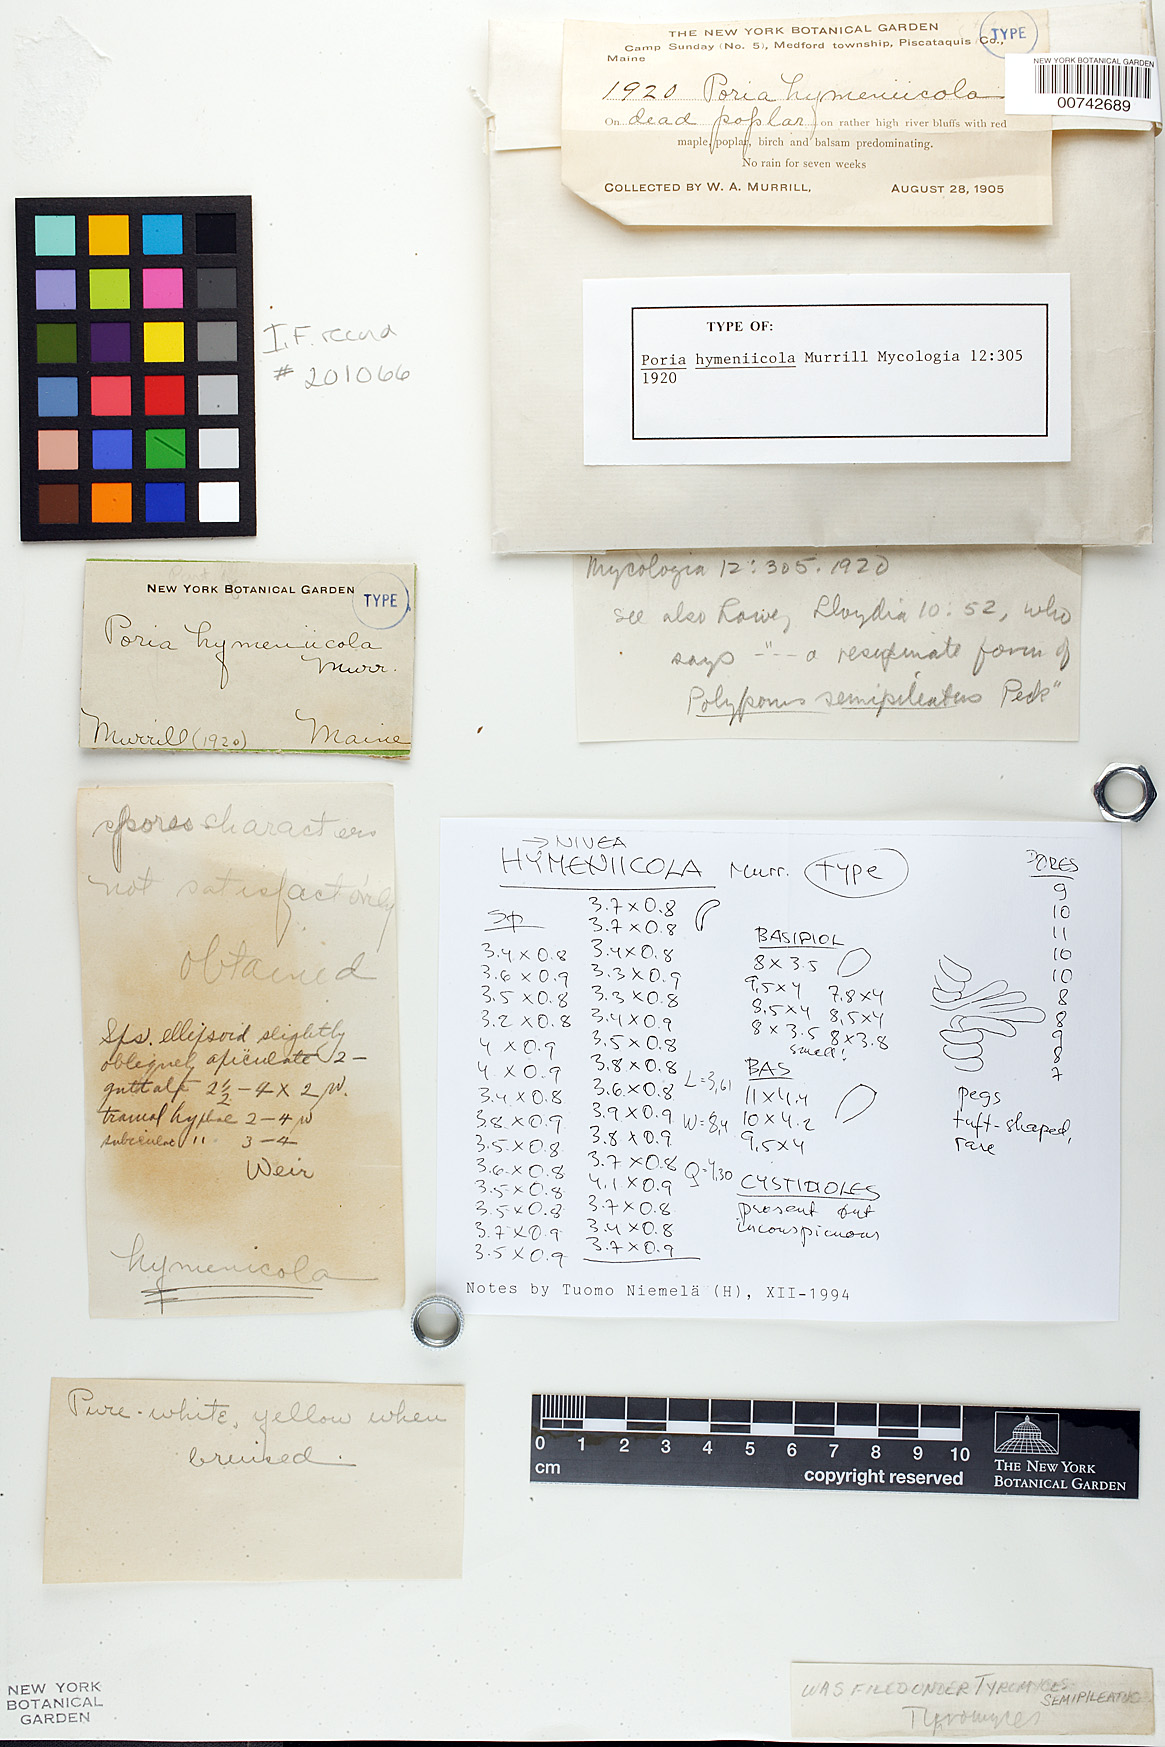 THE NEW YORK BOTANICAL GARDEN
Camp Sunday (No. 5), Medford township, Piscataquis Co.,
Maine
TYPE
NEW YORK BOTANICAL GARDEN
00742689
1920 Poria hymeniicola
On dead poplar, on rather high river bluffs with red
maple, poplar, birch and balsam predominating.
No rain for seven weeks
COLLECTED BY W. A. MURRILL, AUGUST 28, 1905
TYPE OF:
Poria hymeniicola Murrill Mycologia 12:305
1920
I.F. record
# 201066
Mycologia 12:305. 1920
see also Lowe, Lloydia 10:52, who
says -"-- a resupinate form of
Polyporus semipileatus Peck"
NEW YORK BOTANICAL GARDEN
TYPE
Poria hymeniicola
Murr.
Murrill (1920) Maine
spores characters
not satisfactorily
obtained
Sps. ellipsoid slightly
obliquely apiculate 2-
guttate 2½-4 x 2 µ.
tramal hyphae 2-4 µ
subiculae " 3-4
Weir
hymenicola
→ NIVEA
HYMENIICOLA Murr. TYPE
Sp
3.4 x 0.8
3.6 x 0.9
3.5 x 0.8
3.2 x 0.8
4 x 0.9
4 x 0.9
3.4 x 0.8
3.8 x 0.9
3.5 x 0.8
3.6 x 0.8
3.5 x 0.8
3.5 x 0.8
3.7 x 0.9
3.5 x 0.9
3.7 x 0.8
3.7 x 0.8
3.4 x 0.8
3.3 x 0.9
3.3 x 0.8
3.4 x 0.9
3.5 x 0.8
3.8 x 0.8
3.6 x 0.8
3.9 x 0.9
3.8 x 0.9
3.7 x 0.8
4.1 x 0.9
3.7 x 0.8
3.4 x 0.8
3.7 x 0.9
L=3,61
W=8,4
Q=4,30
BASIDIOL
8 x 3.5
9,5 x 4 7.8 x 4
8,5 x 4 8,5 x 4
8 x 3.5 8 x 3.8
small!
BAS
11 x 4.4
10 x 4.2
9,5 x 4
CYSTIDIOLES
present but
inconspicuous
PORES
9
10
11
10
10
8
8
9
8
7
pegs
tuft-shaped,
rare
Notes by Tuomo Niemelä (H), XII-1994
Pure-white, yellow when
bruised.
0 1 2 3 4 5 6 7 8 9 10
cm
copyright reserved
THE NEW YORK
BOTANICAL GARDEN
NEW YORK
BOTANICAL
GARDEN
WAS FILED UNDER TYROMYCES
SEMIPILEATUS
Tyromyces